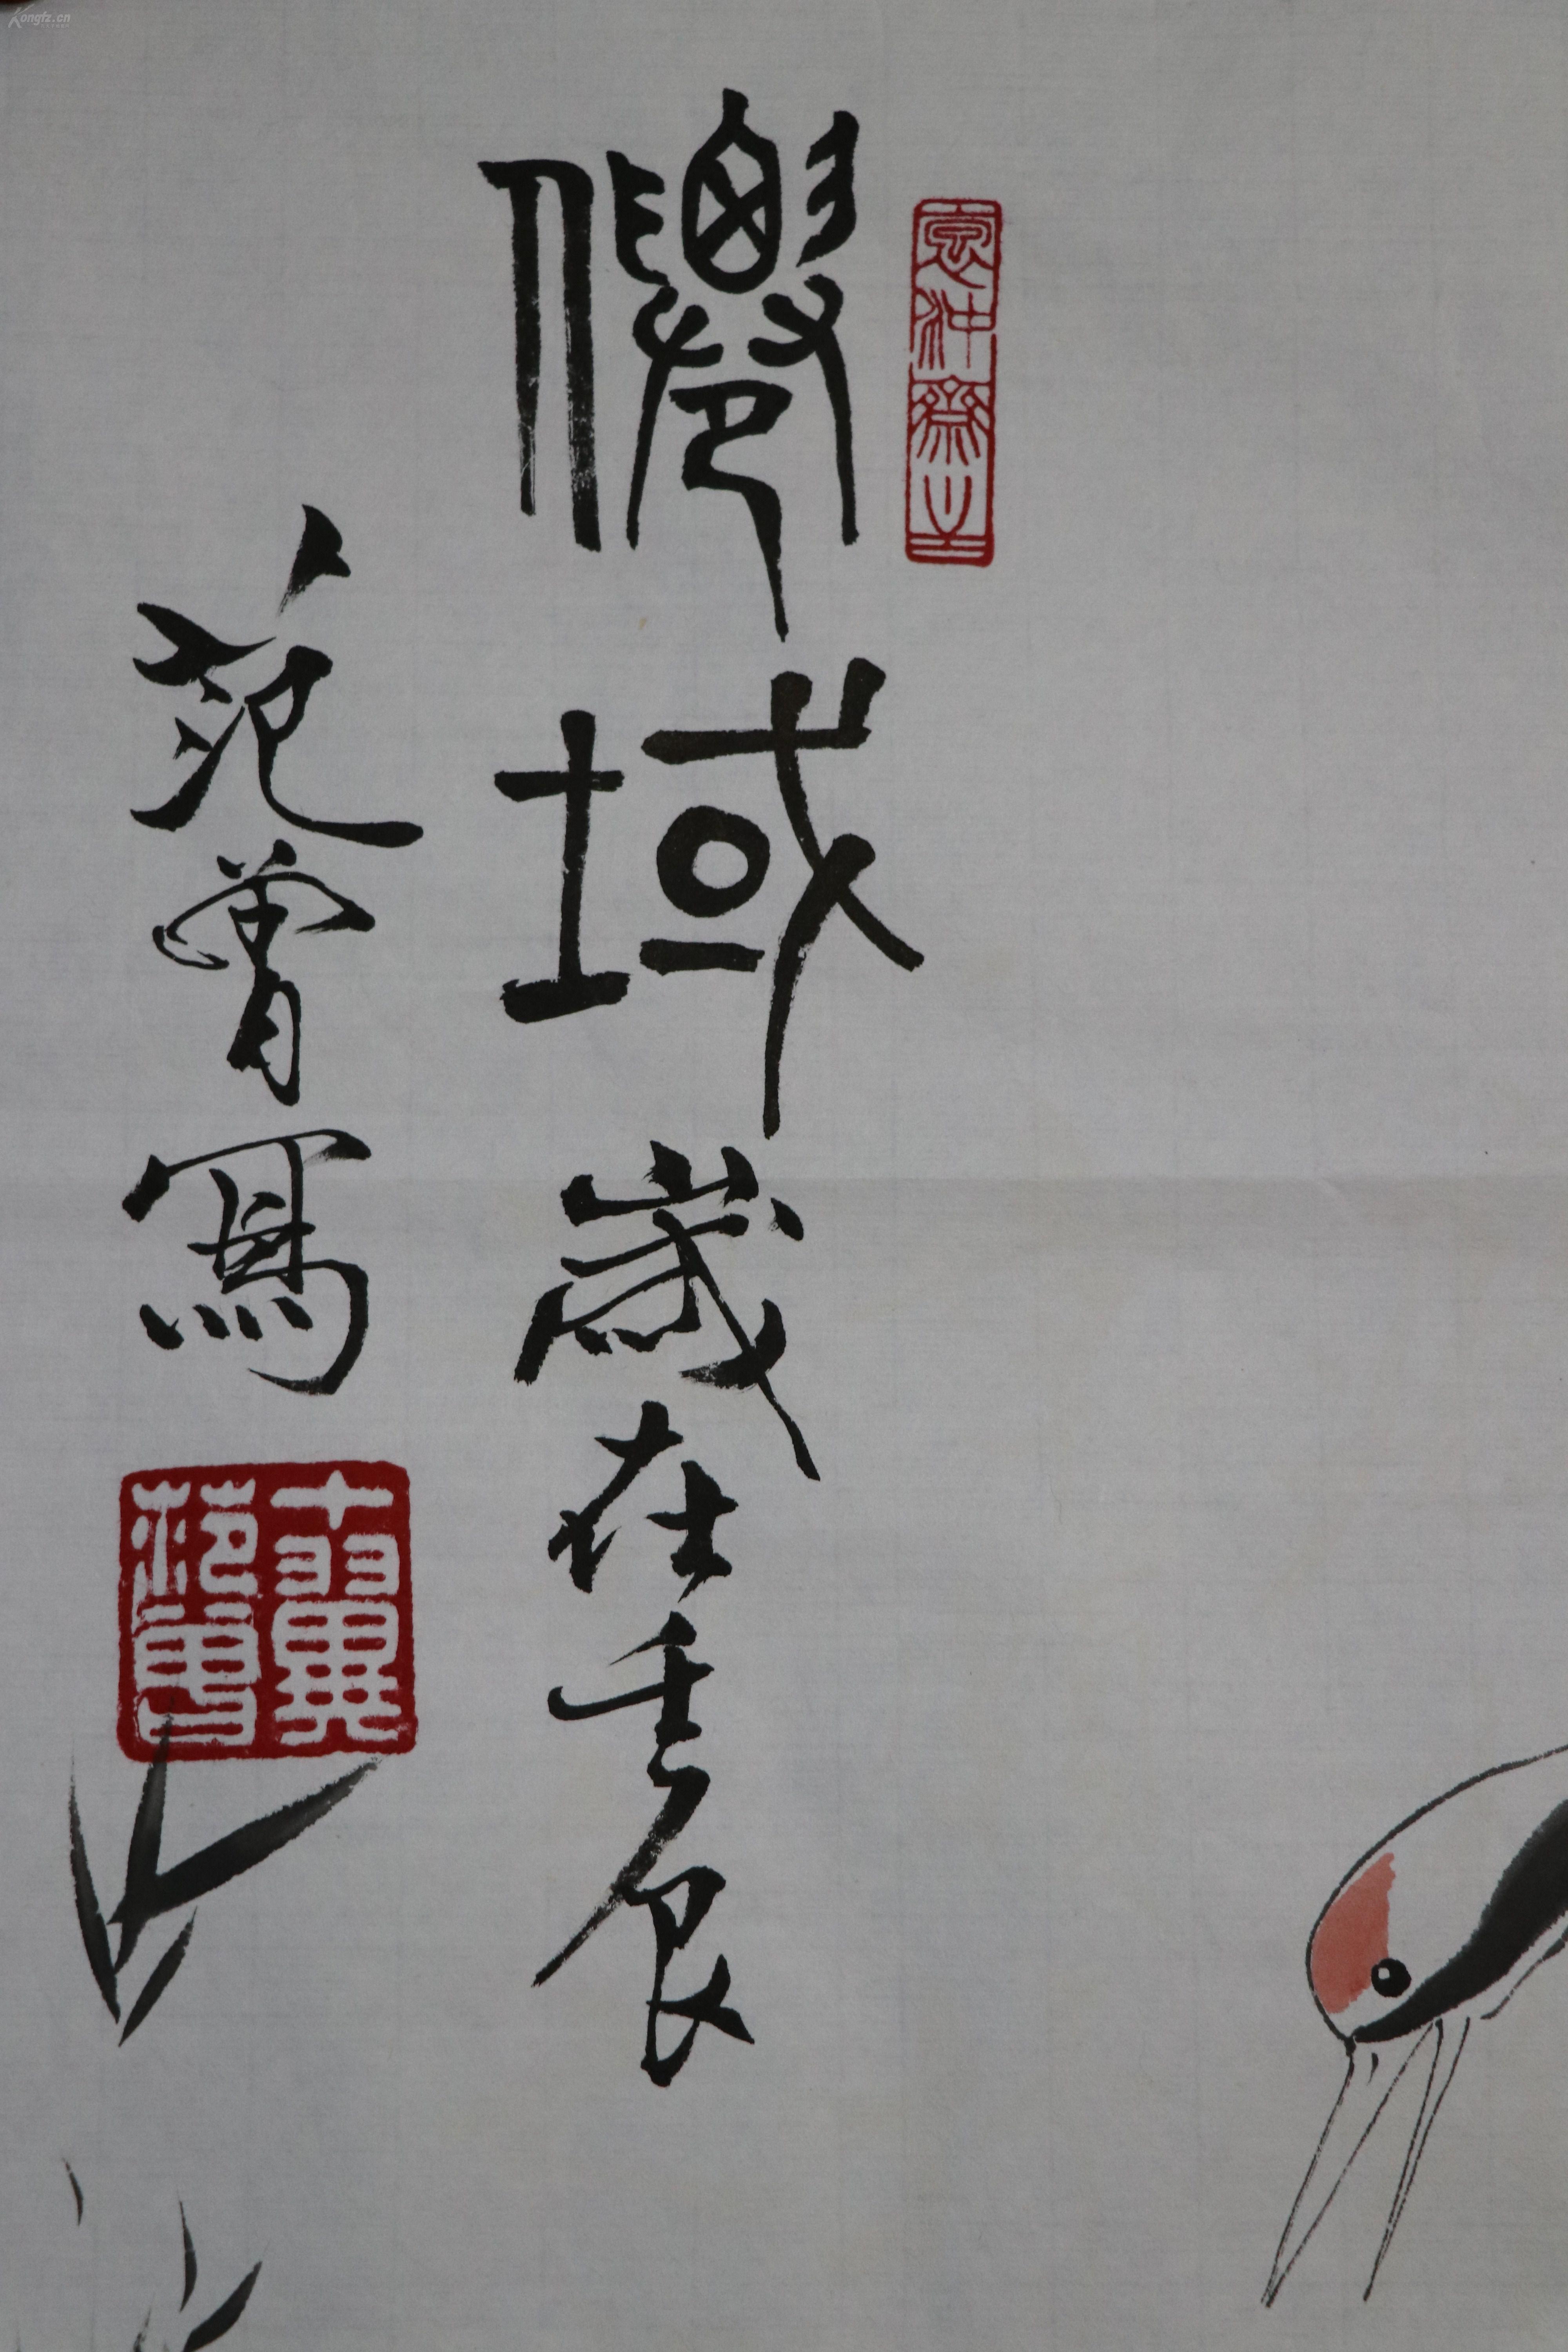 Kongfz.cn
僊域歲在壬辰
范曾寫
十翼
范曾